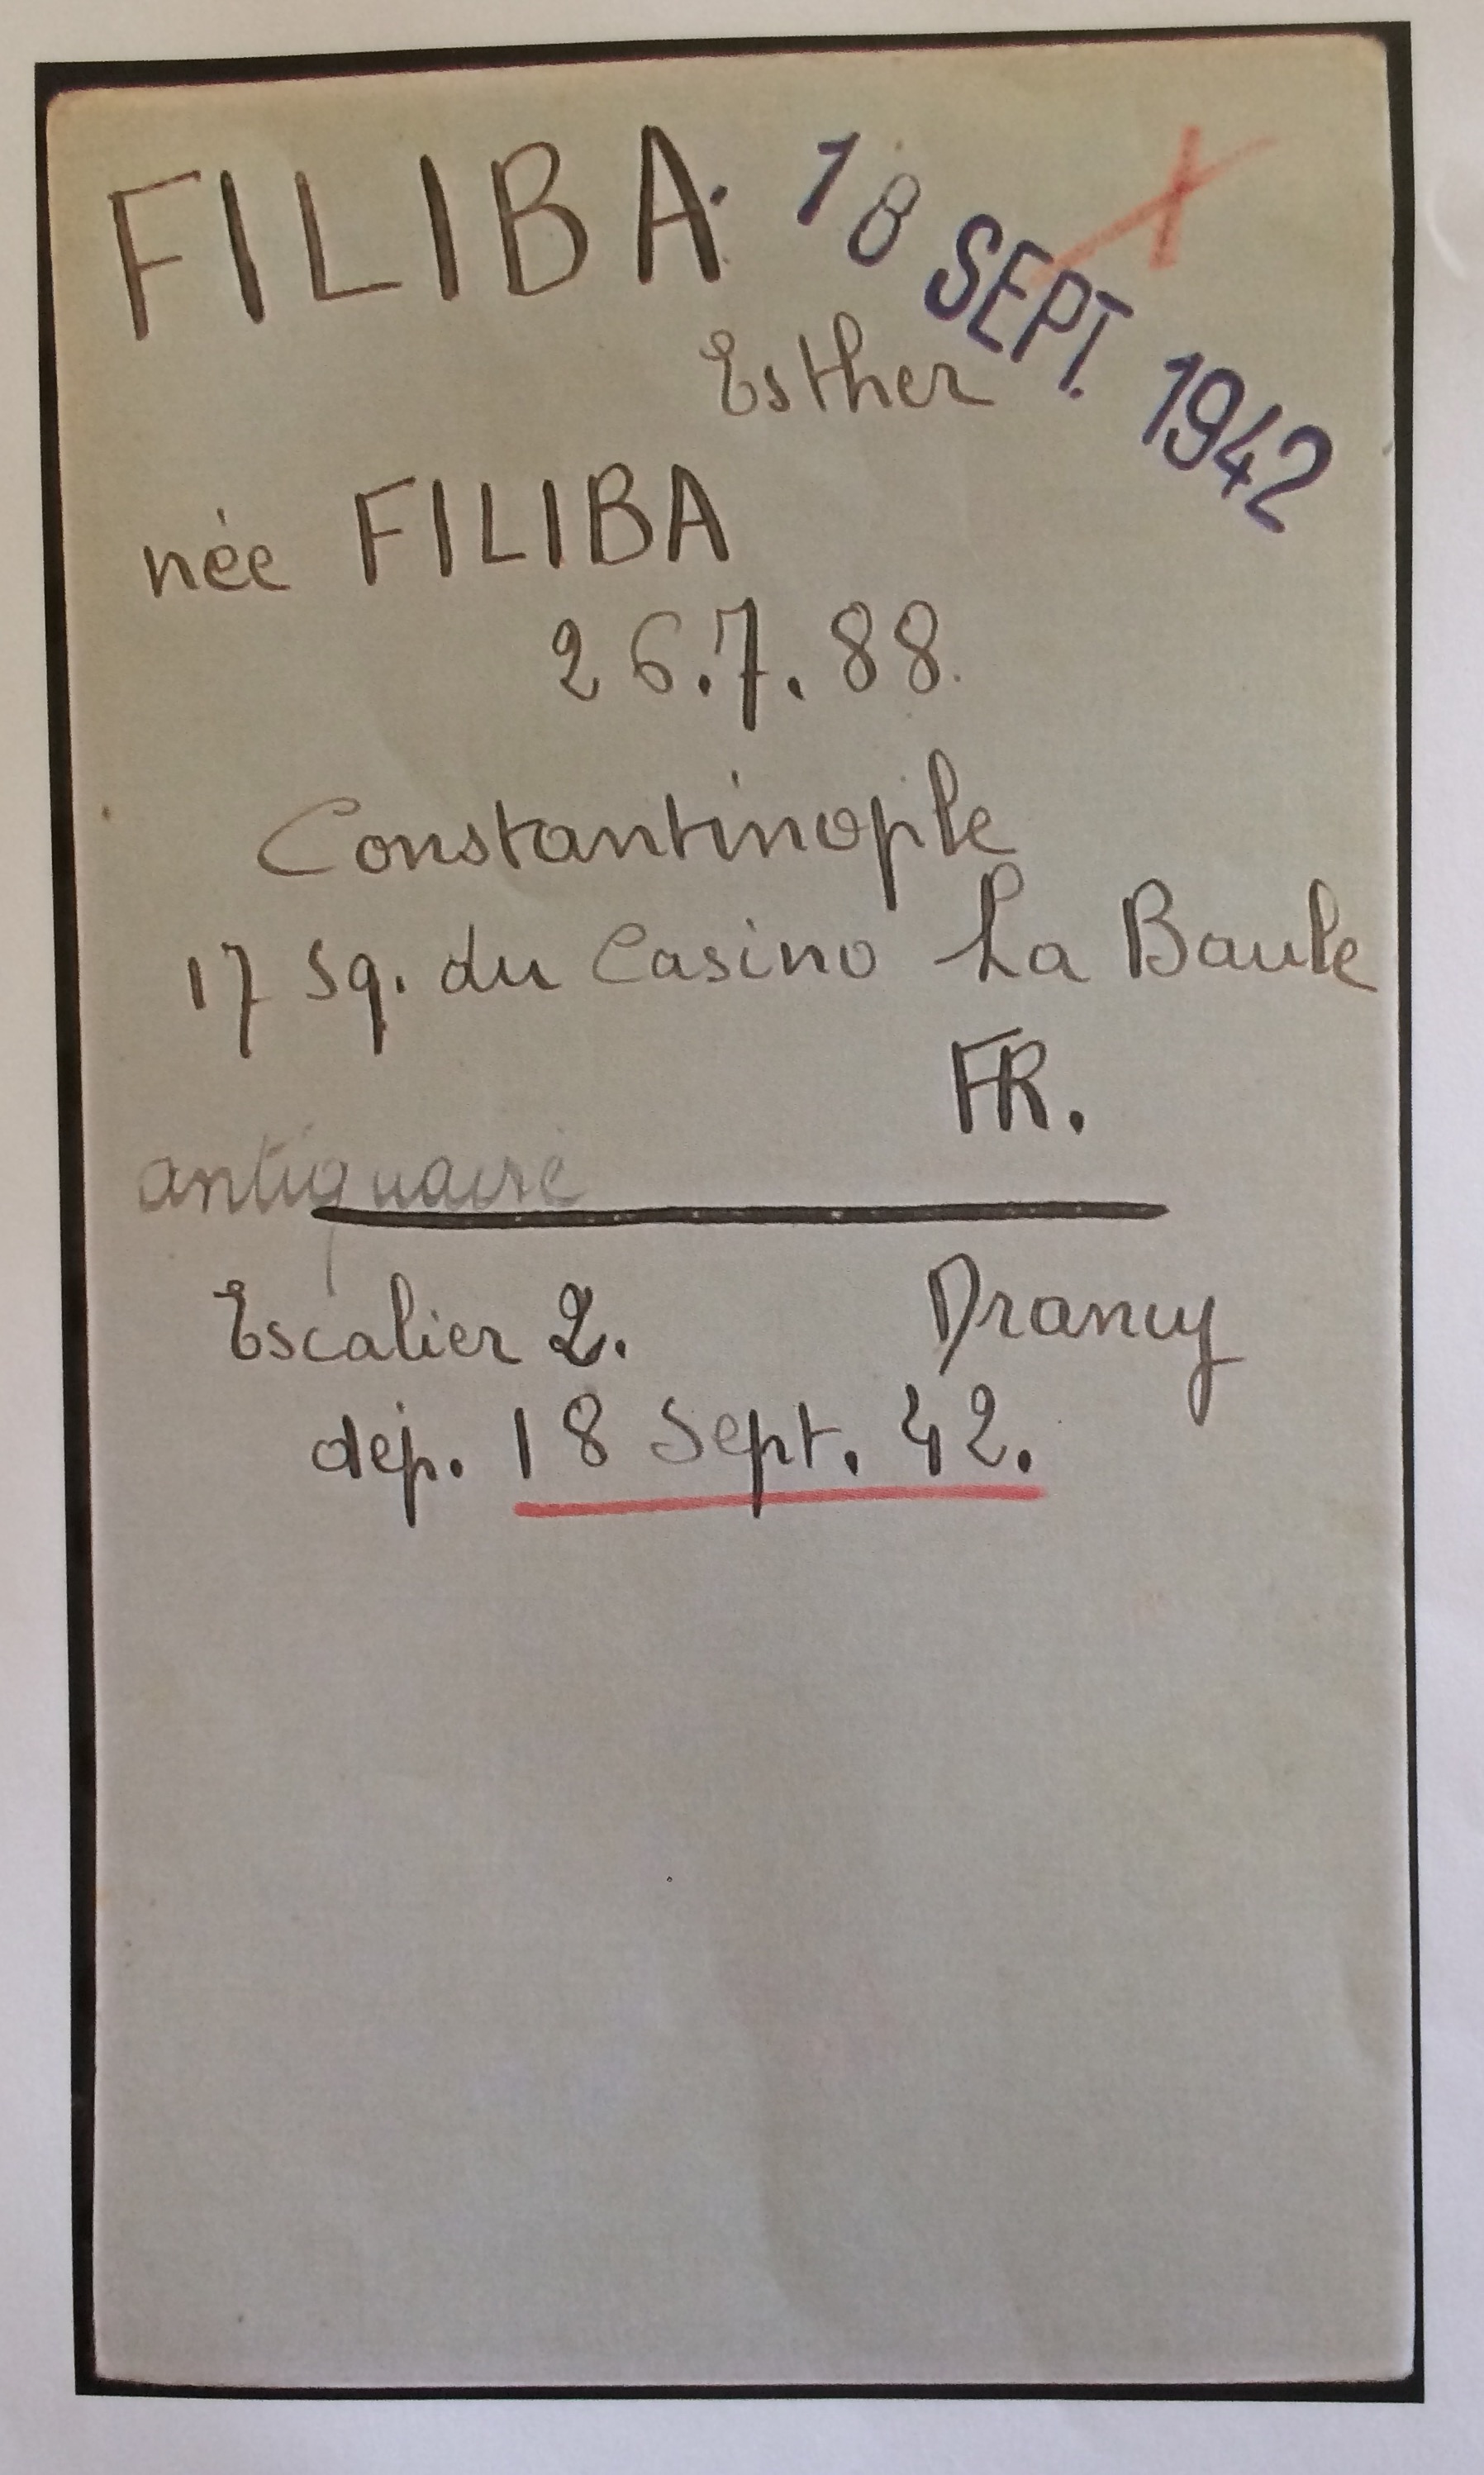 FILIBA
18 SEPT. 1942
Esther
née FILIBA
26.7.88.
Constantinople
17 Sq. du Casino La Baule
FR.
antiquaire
Escalier 2. Drancy
dép. 18 Sept. 42.